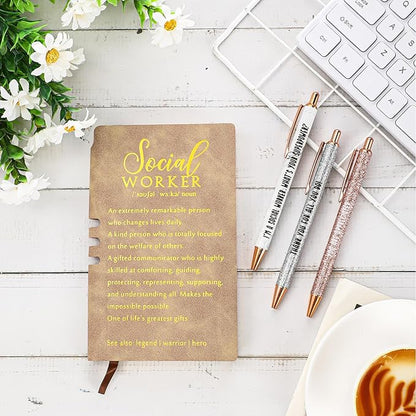 Social
WORKER
/'səʊʃəl wɜːkə/ noun
An extremely remarkable person
who changes lives daily.
A kind person who is totally focused
on the welfare of others.
A gifted communicator who is highly
skilled at comforting, guiding,
protecting, representing, supporting,
and understanding all. Makes the
impossible possible.
One of life's greatest gifts
See also: legend | warrior | hero
I'M A SOCIAL WORKER WHAT'S YOUR SUPERPOWER
THANK YOU FOR ALL YOU DO